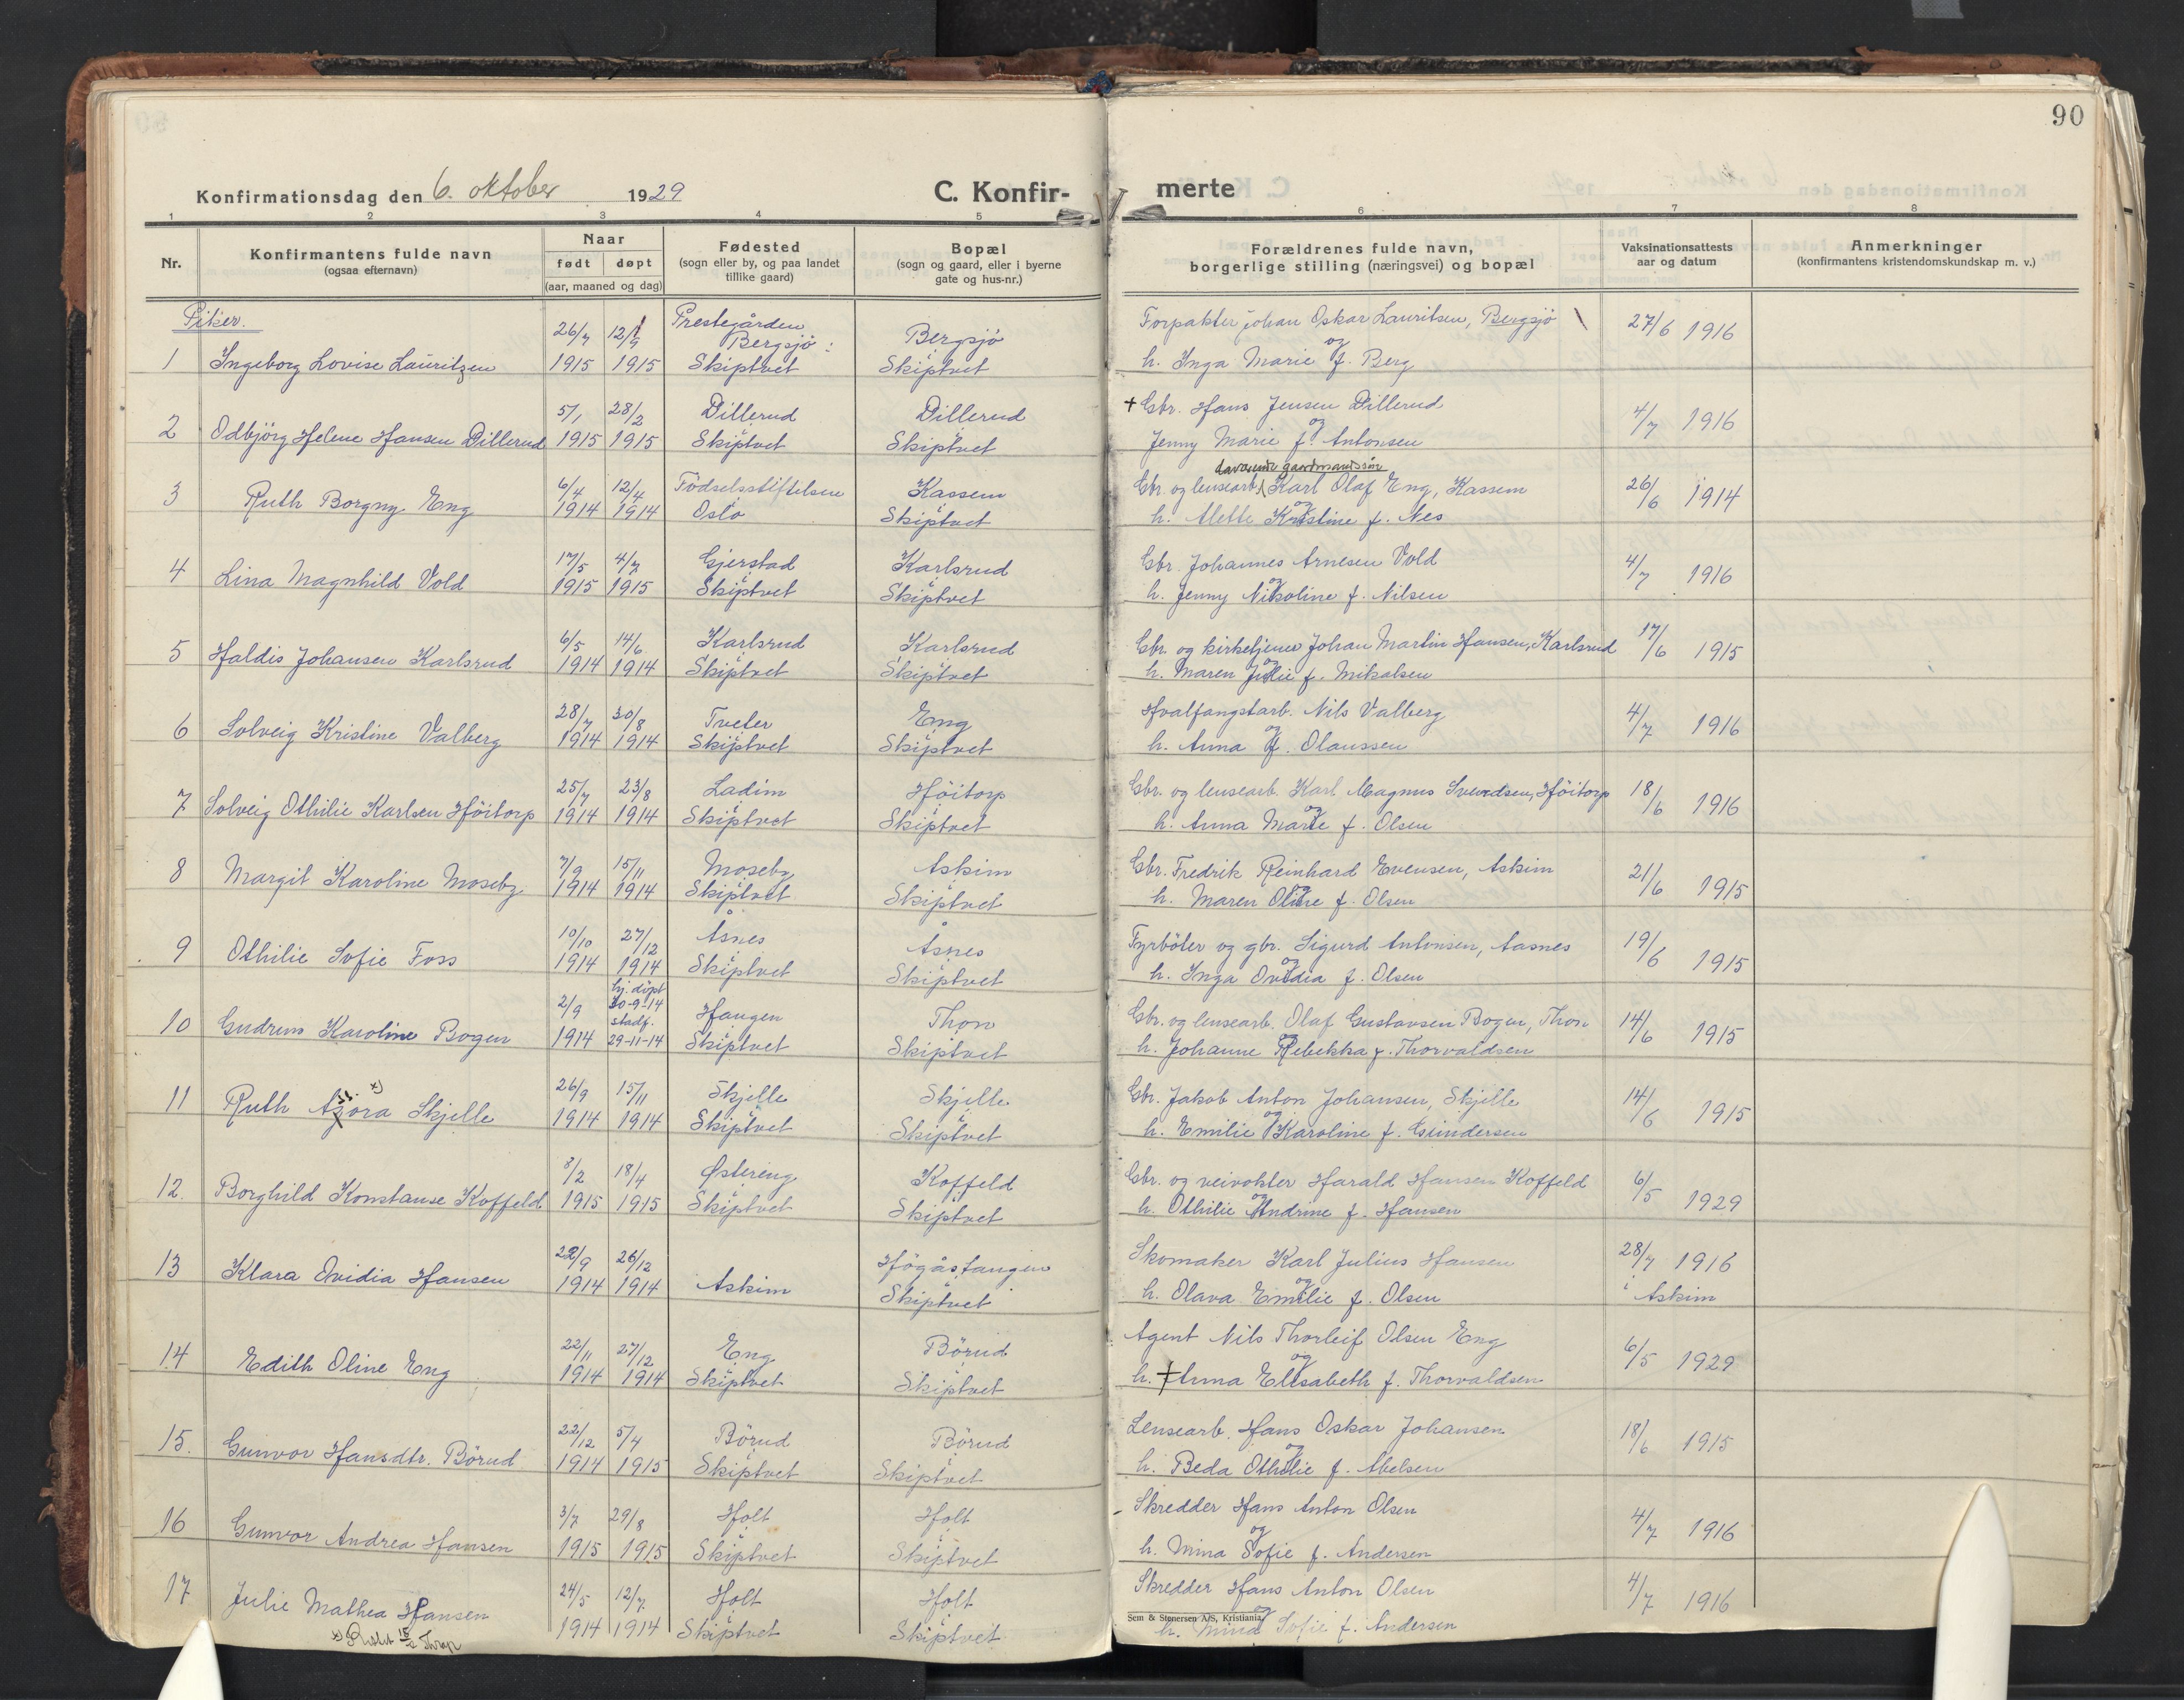 90
Konfirmationsdag den 6. oktober 1929 C. Konfir-
merte
1 2 3 4 5 6 7 8
Nr.
Konfirmantens fulde navn
(ogsaa efternavn)
Naar
født døpt
(aar, maaned og dag)
Fødested
(sogn eller by, og paa landet
tillike gaard)
Bopæl
(sogn og gaard, eller i byerne
gate og hus-nr.)
Forældrenes fulde navn,
borgerlige stilling (næringsvei) og bopæl
Vaksinationsattests
aar og datum
Anmerkninger
(konfirmantens kristendomskundskap m. v.)
Piker.
26/7 12/9 Prestegården Bergsjö: Bergsjö Forpakter Johan Oskar Lauritsen, Bergsjö 27/6 1916
1 Ingeborg Lovise Lauritzen 1915 1915 Skiptvet Skiptvet og h. Inga Marie f. Berg
5/1 28/2 Dillerud Dillerud + Gbr. Hans Jensen Dillerud 4/7 1916
2 Odbjörg Helene Hansen Dillerud 1915 1915 Skiptvet Skiptvet og Jenny Marie f. Antonsen
daværende gaardmandssön
6/4 12/4 Födselsstiftelsen Kassem Gbr. og lensearb. Karl Olaf Eng, Kassem 26/6 1914
3 Ruth Borgny Eng 1914 1914 Oslo Skiptvet og h. Alette Kristine f. Nes
17/5 4/7 Gjerstad Karlsrud Gbr. Johannes Arnesen Vold 4/7 1916
4 Lina Magnhild Vold 1915 1915 Skiptvet Skiptvet og h. Jenny Nikoline f. Nilsen
6/5 14/6 Karlsrud Karlsrud Gbr. og kirketjener Johan Martin Hansen, Karlsrud 17/6 1915
5 Haldis Johansen Karlsrud 1914 1914 Skiptvet Skiptvet og h. Maren Julie f. Mikalsen
28/7 30/8 Tveter Eng Hvalfangstarb. Nils Valberg 4/7 1916
6 Solveig Kristine Valberg 1914 1914 Skiptvet Skiptvet og h. Anna f. Olaussen
25/7 23/8 Ladim Höitorp Gbr. og lensearb. Karl Magnus Svendsen, Höitorp 18/6 1916
7 Solveig Othilie Karlsen Höitorp 1914 1914 Skiptvet Skiptvet og h. Anna Marie f. Olsen
7/9 15/11 Moseby Askim Gbr. Fredrik Reinhard Evensen, Askim 21/6 1915
8 Margit Karoline Moseby 1914 1914 Skiptvet Skiptvet og h. Maren Oline f. Olsen
10/10 27/12 Åsnes Åsnes Fyrböter og gbr. Sigurd Antonsen, Aasnes 19/6 1915
9 Othilie Sofie Foss 1914 1914 Skiptvet Skiptvet og h. Inga Ovidia f. Olsen
hj. döpt
2/9 30-9-14 Haugen Thon Gbr. og lensearb. Olaf Gustavsen Bogen, Thon 14/6 1915
stadf.
10 Gudrun Karoline Bogen 1914 29-11-14 Skiptvet Skiptvet og h. Johanne Rebekka f. Thorvaldsen
26/9 15/11 Skjelle Skjelle Gbr. Jakob Anton Johansen, Skjelle 14/6 1915
11 Ruth Azora x) Skjelle 1914 1914 Skiptvet Skiptvet og h. Emilie Karoline f. Gundersen
8/2 18/4 Østereng Koffeld Gbr. og veivokter Harald Hansen Koffeld 6/5 1929
12. Borghild Konstanse Koffeld 1915 1915 Skiptvet Skiptvet og h. Othilie Andrine f. Hansen
22/9 26/12 Högåstangen Skomaker Karl Julius Hansen 28/7 1916
13 Klara Ovidia Hansen 1914 1914 Askim Skiptvet og h. Olava Emilie f. Olsen i Askim
22/11 27/12 Eng Börud Agent Nils Thorleif Olsen Eng 6/5 1929
14 Edith Oline Eng 1914 1914 Skiptvet Skiptvet og h. + Anna Elisabeth f. Thorvaldsen
22/12 5/4 Börud Börud Lensearb. Hans Oskar Johansen 18/6 1915
15. Gunvor Hansdtr. Börud 1914 1915 Skiptvet Skiptvet og h. Beda Othilie f. Abelsen
3/7 29/8 Holt Holt Skredder Hans Anton Olsen 4/7 1916
16 Gunvor Andrea Hansen 1915 1915 Skiptvet Skiptvet og h. Mina Sofie f. Andersen
24/5 12/7 Holt Holt Skredder Hans Anton Olsen 4/7 1916
17 Julie Mathea Hansen 1914 1914 Skiptvet Skiptvet og h. Mina Sofie f. Andersen
Sem & Stenersen A/S, Kristiania